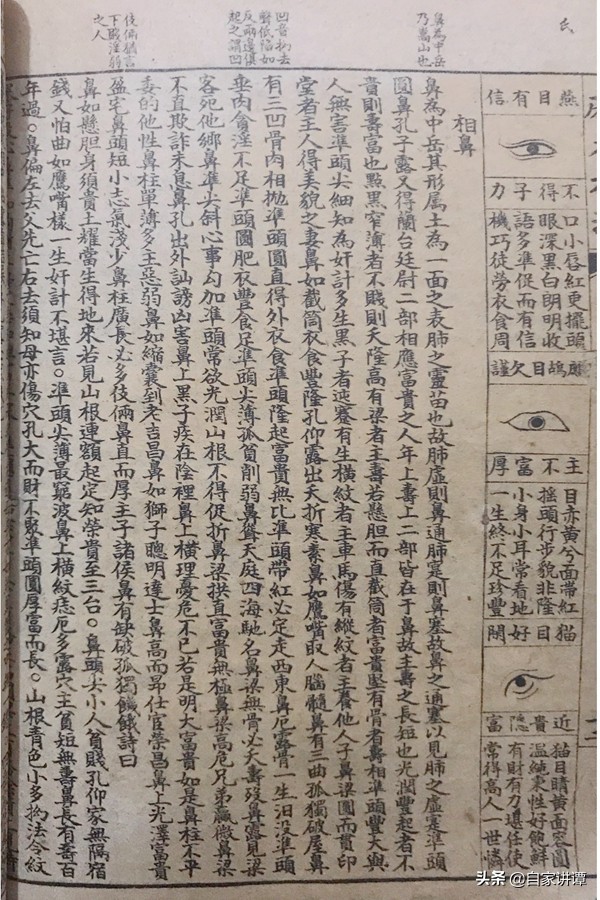 鼻為中岳
乃嵩山也
凹音拗去
聲低陷如
反兩邊俱
起之謂凹
伎倆猶言
下賤淫弱
之人
燕目有信
不得子力
口小唇紅更擺頭
眼深黑白朗明收
語多準促而有信
機巧徒勞衣食周
鴣目欠謹
主不富厚
目赤黃兮面帶紅
搖頭行步貌非隆
小身小耳常看地
一生終不足珍豐
猫目好閑
近貴隱富
猫目睛黃面容圓
溫純秉性好飽鮮
有財有力堪任使
常得高人一世憐
相鼻
鼻為中岳其形属土為一面之表肺之靈苗也故肺虛則鼻通肺寔則鼻塞故鼻之通塞以見肺之虛寔準頭
圓鼻孔子露又得蘭台廷尉二部相應富貴之人年上壽上二部皆在于鼻故主壽之長短也光潤豐起者不
貴則壽富也點黑窄薄者不賤則夭隆高有梁者主壽若懸胆而直截筒者富貴堅有骨者壽相準頭豐大與
人無害準頭尖細知為奸計多生黑子者迍蹇有生橫紋者主車馬傷有縱紋者主養他人子鼻梁圓而貫印
堂者主人得美貌之妻鼻如截筒衣食豐隆孔仰露出夭折寒素鼻如鷹嘴取人腦髓鼻有三曲孤獨破屋鼻
有三凹骨肉相抛準頭圓直得外衣食準頭隆起富貴無比準頭帶紅必定走西東鼻卮露骨一生汩没準頭
垂肉貪淫不足準頭圓肥衣豐食足準頭尖薄孤貧削弱鼻聳天庭四海馳名鼻梁無骨必夭壽歿鼻露見梁
客死他鄉鼻準尖斜心事勾加準頭常欲光潤山根不得促折鼻梁拱直富貴無極鼻梁高危兄弟羸微鼻梁
不直欺詐未息鼻孔出外訕謗凶害鼻上黑子疾在陰裡鼻上橫理憂危不已若是明大富貴如是鼻柱不平
委的他性鼻柱單薄多主惡弱鼻如縮囊到老吉昌鼻如獅子聰明達士鼻高而昂仕官榮昌鼻上光澤富貴
盈宅鼻頭短小志氣淺少鼻柱廣長必多伎倆鼻直而厚主子諸侯鼻有缺破孤獨饑餓詩曰
鼻如懸胆身須貴土耀當生得地來若見山根連額起定知榮貴至三台。鼻頭尖小人貧賤孔仰家無隔宿
錢又怕曲如鷹嘴樣一生奸計不堪言。準頭尖薄最窮波鼻上橫紋痣厄多露穴主貧短無壽鼻長有壽百
年過。鼻偏左去父先亡右去須知母亦傷穴孔大而財不聚準頭圓厚富而長。山根青色小多抅法令紋
头条 @自家讲谭